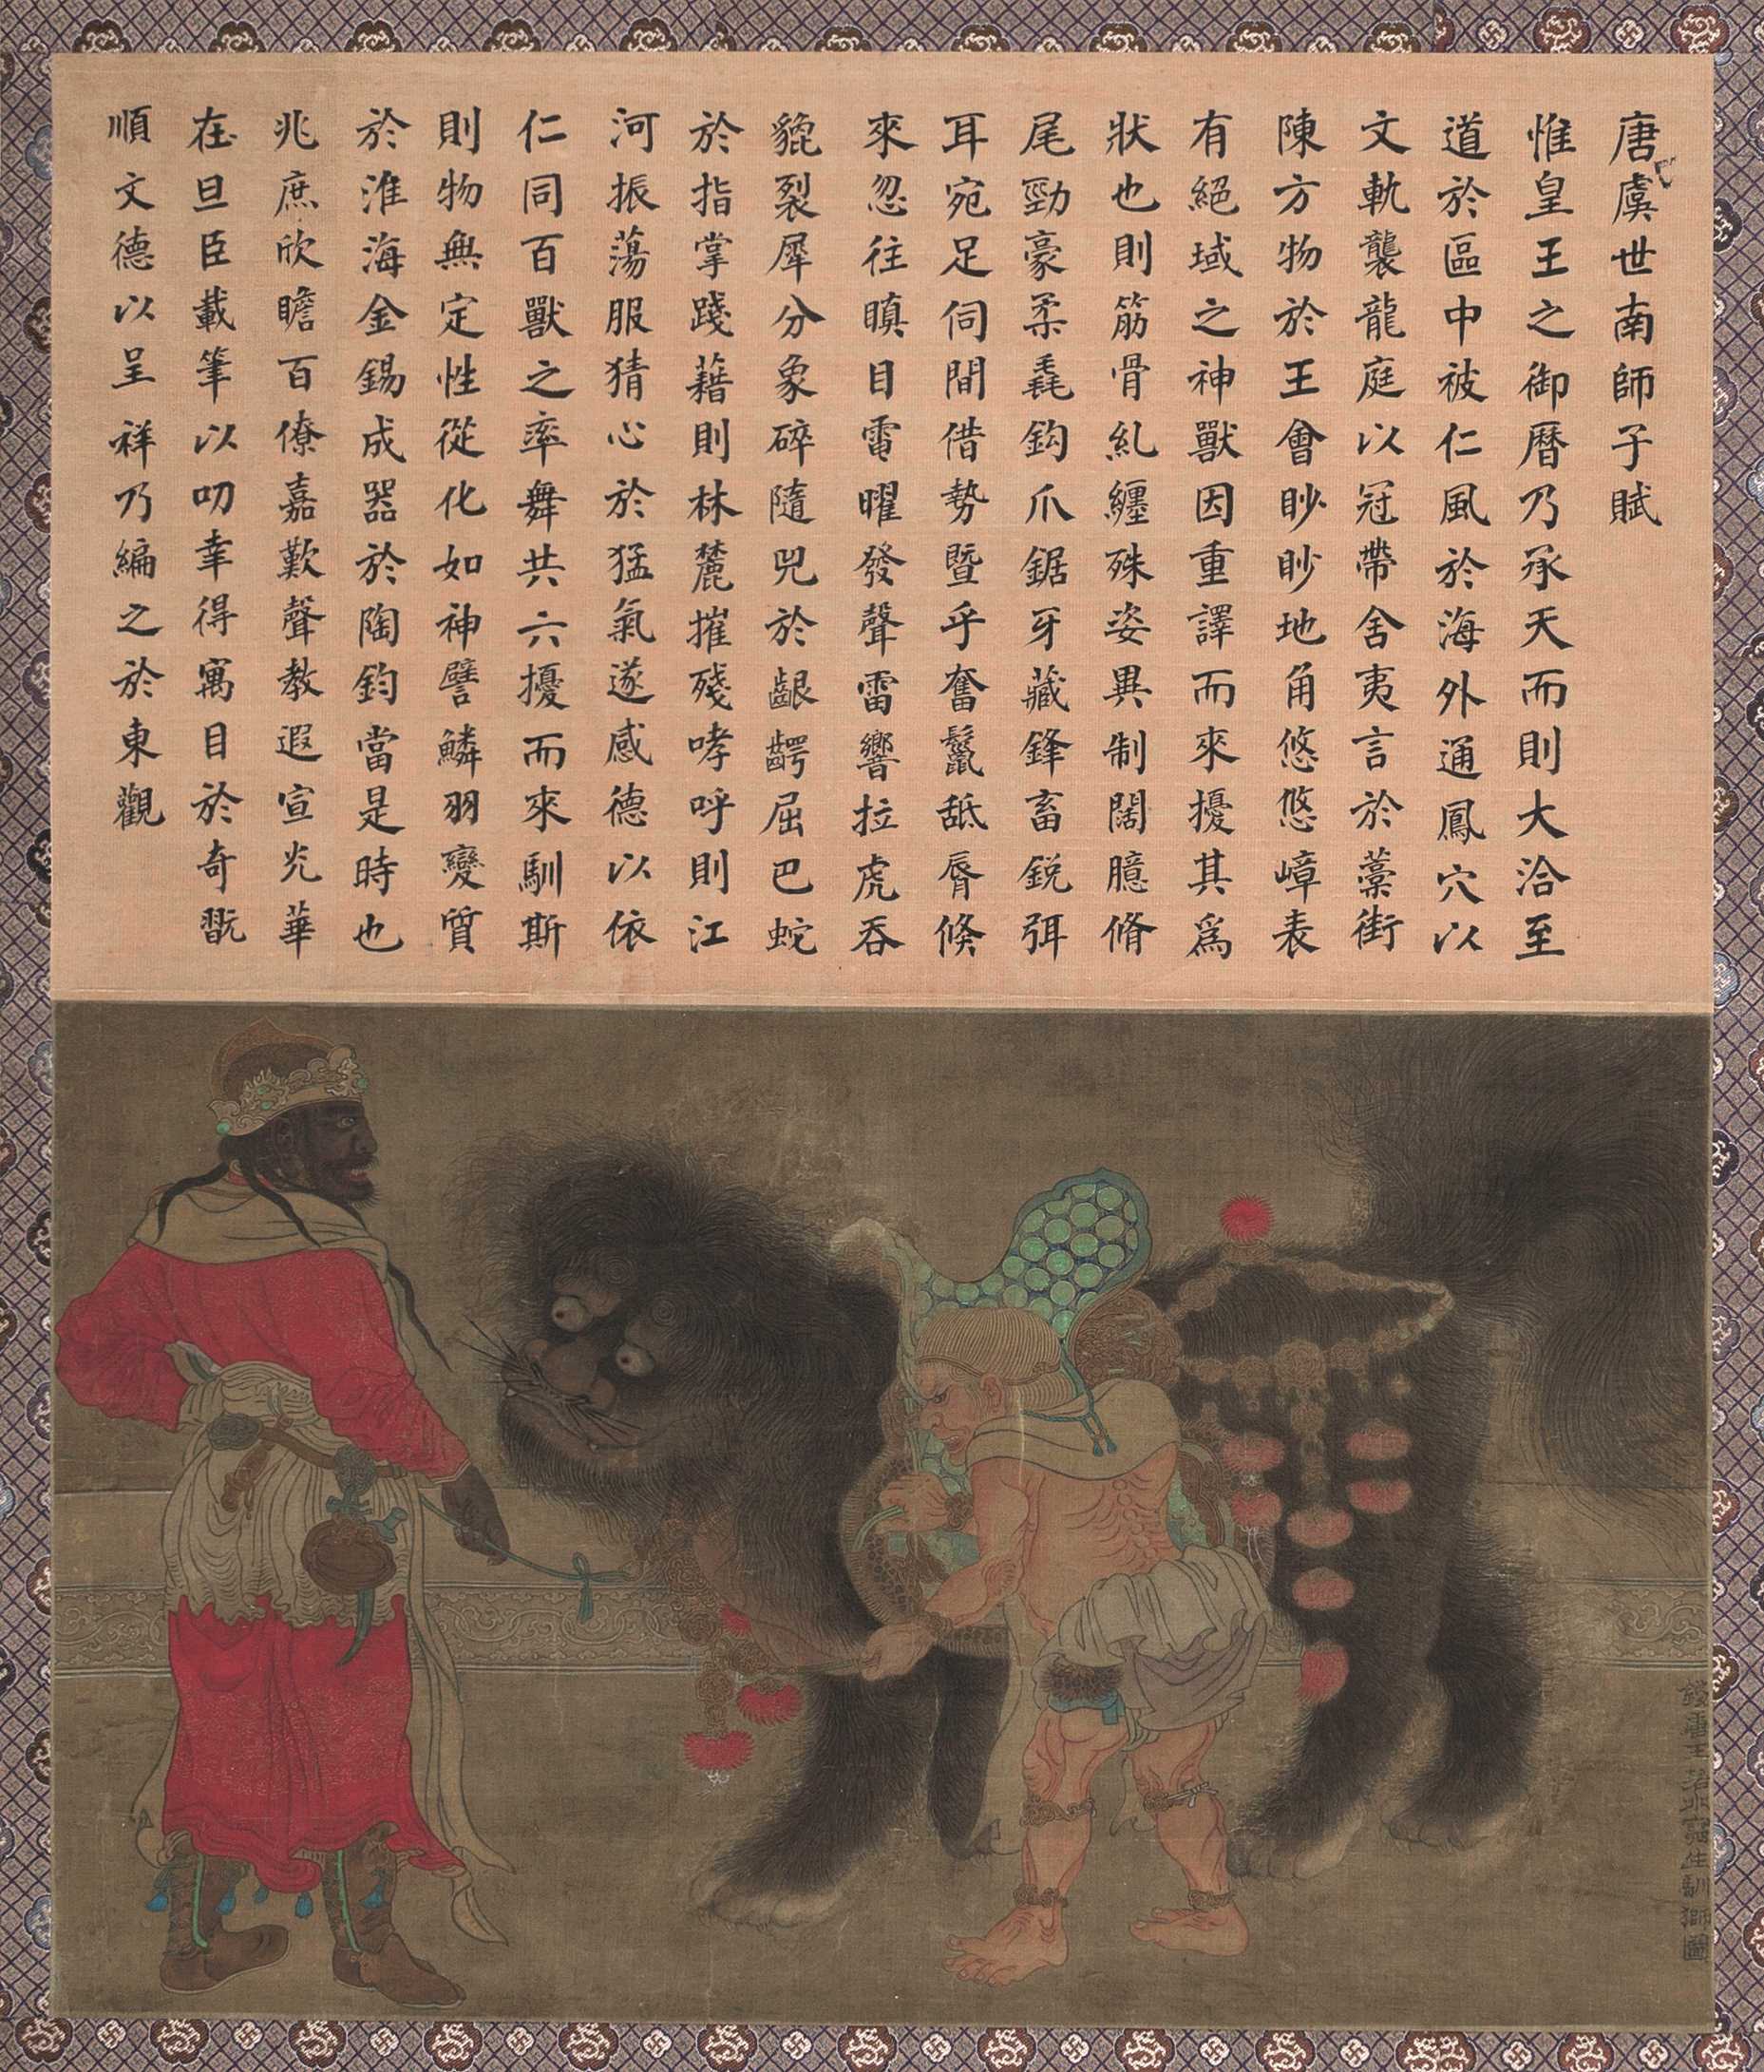 唐虞世南師子賦
惟皇王之御曆乃承天而則大洽至
道於區中被仁風於海外通鳳穴以
文軌襲龍庭以冠帶舍夷言於藁街
陳方物於王會眇眇地角悠悠嶂表
有絕域之神獸因重譯而來擾其爲
狀也則筋骨糺纏殊姿異制闊臆脩
尾勁豪柔毳鈎爪鋸牙藏鋒畜銳弭
耳宛足伺間借勢暨乎奮鬣舐脣倏
來忽往瞋目電曜發聲雷響拉虎吞
貔裂犀分象碎隨兕於齦齶屈巴蛇
於指掌踐藉則林麓摧殘哮呼則江
河振蕩服猜心於猛氣遂感德以依
仁同百獸之率舞共六擾而來馴斯
則物無定性從化如神譬鱗羽變質
於淮海金錫成器於陶鈞當是時也
兆庶欣瞻百僚嘉歎聲教遐宣光華
在旦臣載筆以叨幸得寓目於奇翫
順文德以呈祥乃編之於東觀
寫生馴獅圖